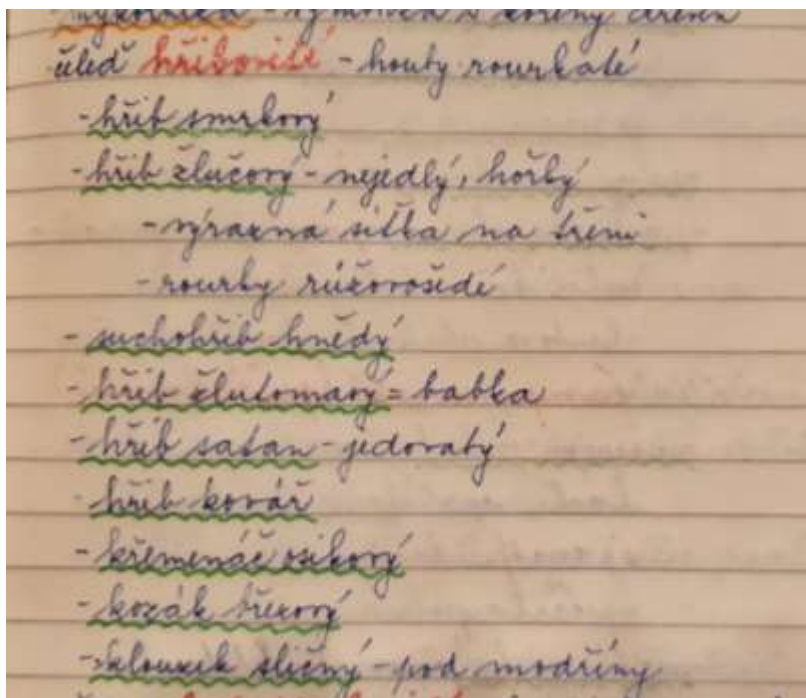 mykorhiza - symbióza s kořeny dřevin
čleď hřibovité - houby rourkaté
- hřib smrkový
- hřib žlučový - nejedlý, hořký
- výrazná síťka na třeni
- rourky růžovošedé
- suchohřib hnědý
- hřib žlutomasý = babka
- hřib satan - jedovatý
- hřib kovář
- křemenáč osikový
- kozák březový
- klouzek sličný - pod modříny